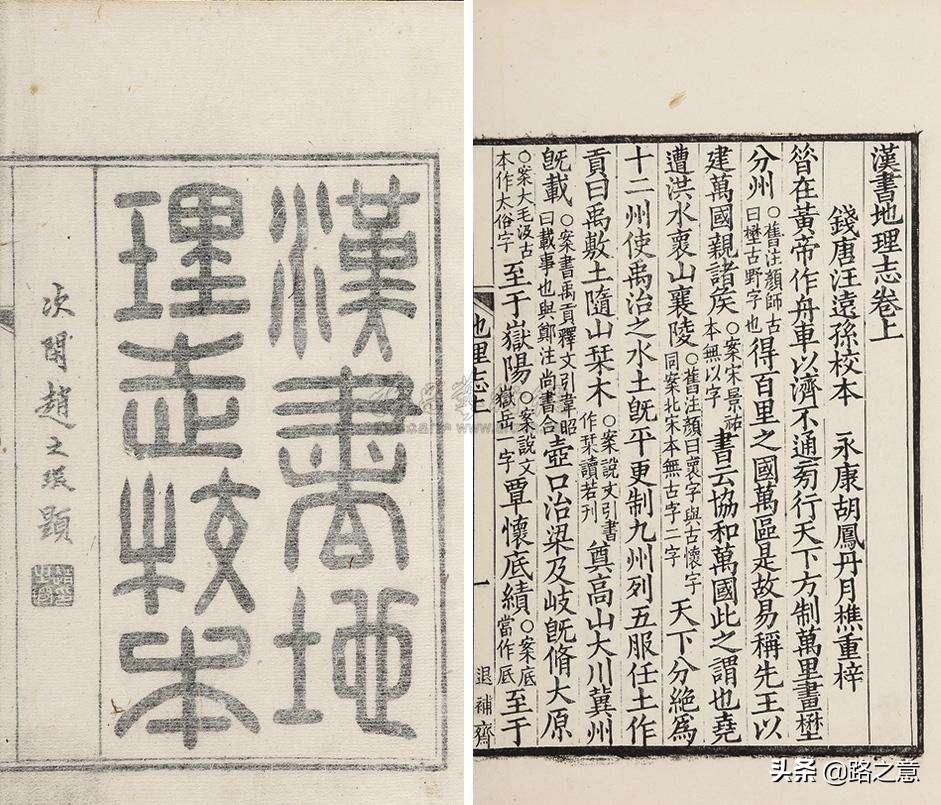 漢書地
理志校本
次閑趙之琛題
漢書地理志卷上
錢唐汪遠孫校本 永康胡鳳丹月樵重梓
昝在黃帝作舟車以濟不通旁行天下方制萬里畫壄
分州○舊注顏師古曰壄古野字也得百里之國萬區是故易稱先王以
建萬國親諸矦○案宋景祐本無以字書云協和萬國此之謂也堯
遭洪水褱山襄陵○舊注顏曰褱字與古懷字同案北宋本無古字二字天下分絕爲
十二州使禹治之水土旣平更制九州列五服任土作
貢曰禹敷土隨山栞木○案說文引書作栞讀若刊奠高山大川冀州
旣載○案書禹貢釋文引韋昭曰載事也與鄭注尚書合壺口治梁及岐旣脩大原
○案大毛汲古本作太俗字至于嶽陽○案說文嶽岳一字覃懷底績○案底當作厎至于
地理志上 一 退補齋
头条 @路之意